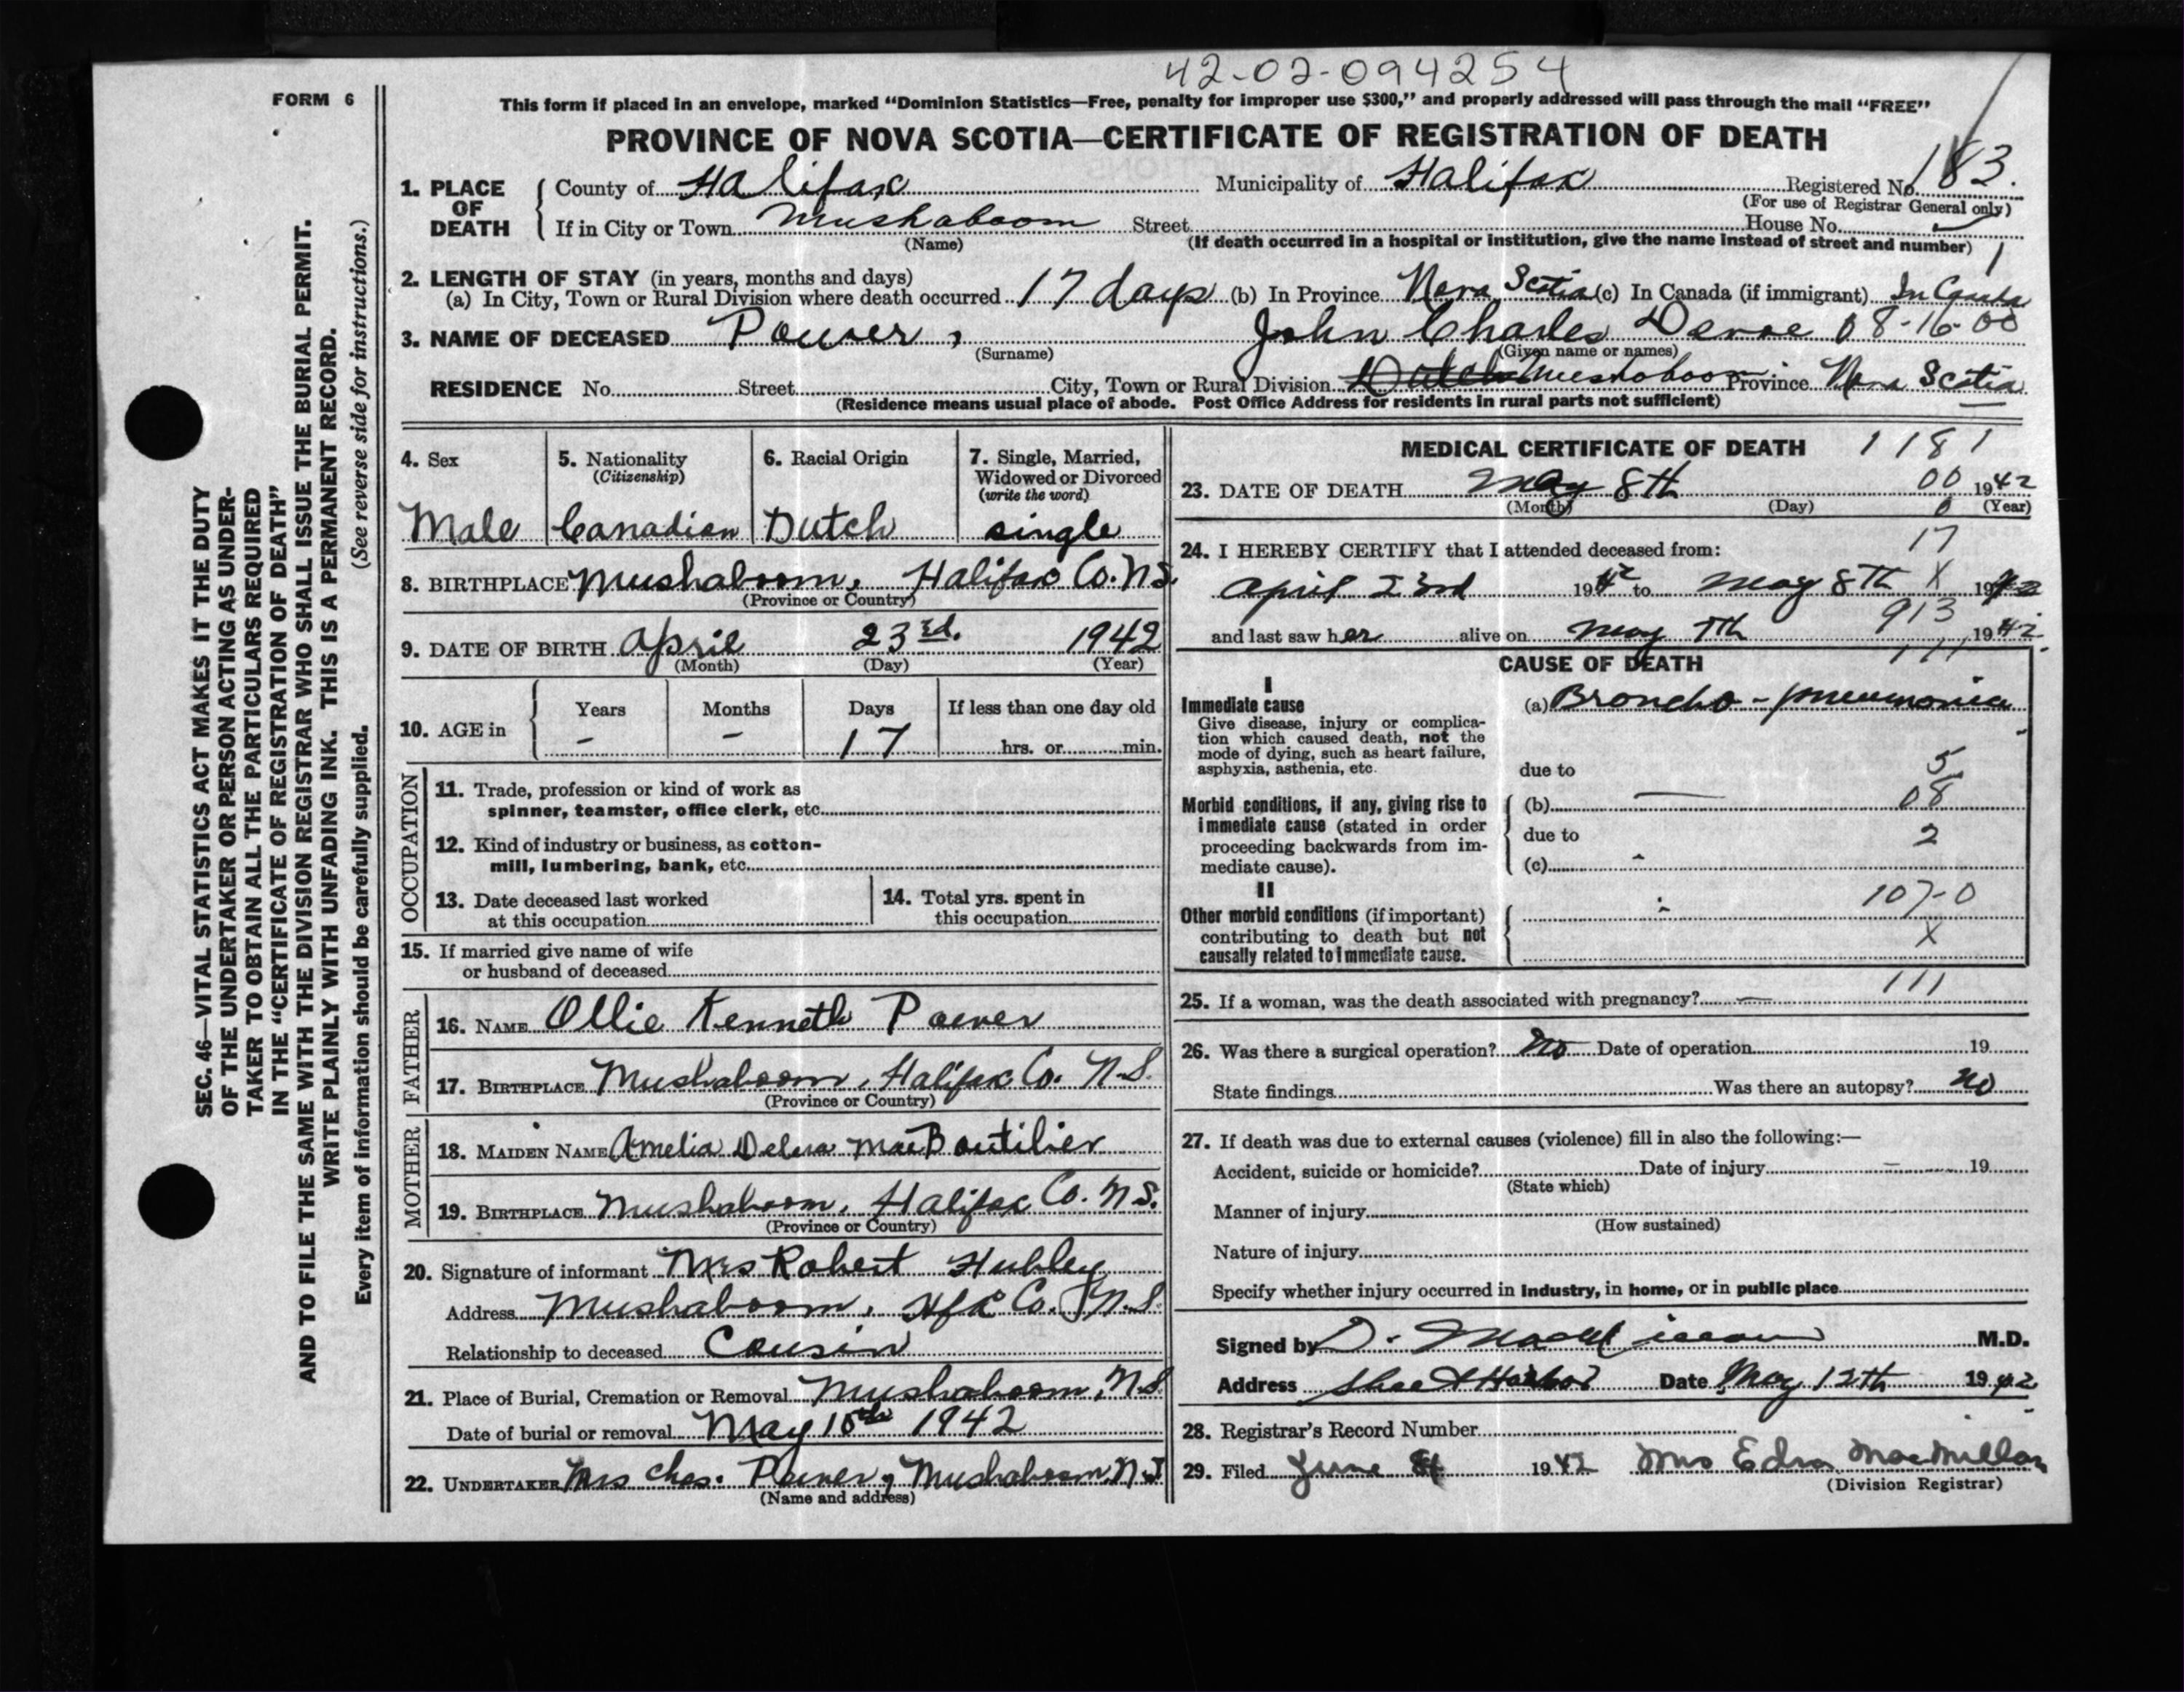 42-02-094254
FORM 6
This form if placed in an envelope, marked "Dominion Statistics—Free, penalty for improper use $300," and properly addressed will pass through the mail "FREE"
PROVINCE OF NOVA SCOTIA—CERTIFICATE OF REGISTRATION OF DEATH
SEC. 46—VITAL STATISTICS ACT MAKES IT THE DUTY
OF THE UNDERTAKER OR PERSON ACTING AS UNDER-
TAKER TO OBTAIN ALL THE PARTICULARS REQUIRED
IN THE "CERTIFICATE OF REGISTRATION OF DEATH"
AND TO FILE THE SAME WITH THE DIVISION REGISTRAR WHO SHALL ISSUE THE BURIAL PERMIT.
WRITE PLAINLY WITH UNFADING INK. THIS IS A PERMANENT RECORD.
Every item of information should be carefully supplied. (See reverse side for instructions.)
1. PLACE OF DEATH County of Halifax Municipality of Halifax Registered No. 183.
(For use of Registrar General only)
If in City or Town Mushaboom Street House No.
(Name) (If death occurred in a hospital or institution, give the name instead of street and number) 1
2. LENGTH OF STAY (in years, months and days)
(a) In City, Town or Rural Division where death occurred 17 days (b) In Province Nova Scotia (c) In Canada (if immigrant) In Canada
3. NAME OF DECEASED Power, John Charles 08-16-00
(Surname) (Given name or names)
RESIDENCE No. Street City, Town or Rural Division Dutch Mushaboom Province Nova Scotia
(Residence means usual place of abode. Post Office Address for residents in rural parts not sufficient)
4. Sex
Male
5. Nationality
(Citizenship)
Canadian
6. Racial Origin
Dutch
7. Single, Married,
Widowed or Divorced
(write the word)
single
8. BIRTHPLACE Mushaboom, Halifax Co. N.S.
(Province or Country)
9. DATE OF BIRTH April 23rd. 1942
(Month) (Day) (Year)
10. AGE in Years Months Days If less than one day old
- - 17 hrs. or min.
OCCUPATION
11. Trade, profession or kind of work as
spinner, teamster, office clerk, etc.
12. Kind of industry or business, as cotton-
mill, lumbering, bank, etc.
13. Date deceased last worked
at this occupation
14. Total yrs. spent in
this occupation
15. If married give name of wife
or husband of deceased
FATHER
16. NAME Ollie Kenneth Power
17. BIRTHPLACE Mushaboom, Halifax Co. N.S.
(Province or Country)
MOTHER
18. MAIDEN NAME Amelia Mae Boutilier
19. BIRTHPLACE Mushaboom, Halifax Co. N.S.
(Province or Country)
20. Signature of informant Mrs Robert Hubley
Address Mushaboom, Hfx Co. N.S.
Relationship to deceased Cousin
21. Place of Burial, Cremation or Removal Mushaboom, N.S.
Date of burial or removal May 10th 1942
22. UNDERTAKER Mrs Chas. Power, Mushaboom, N.S
(Name and address)
MEDICAL CERTIFICATE OF DEATH 1181
23. DATE OF DEATH May 8th 00 1942
(Month) (Day) 0 (Year)
24. I HEREBY CERTIFY that I attended deceased from: 17
April 23rd 1942 to May 8th X 1942
913
and last saw her alive on May 7th 1942
CAUSE OF DEATH 111
I
Immediate cause
Give disease, injury or complica-
tion which caused death, not the
mode of dying, such as heart failure,
asphyxia, asthenia, etc.
(a) Broncho-pneumonia
due to 5
Morbid conditions, if any, giving rise to
immediate cause (stated in order
proceeding backwards from im-
mediate cause).
(b) 08
due to 2
(c)
II
Other morbid conditions (if important)
contributing to death but not
causally related to immediate cause.
107-0
X
25. If a woman, was the death associated with pregnancy? — 111
26. Was there a surgical operation? No Date of operation 19
State findings Was there an autopsy? No
27. If death was due to external causes (violence) fill in also the following:—
Accident, suicide or homicide? Date of injury 19
(State which)
Manner of injury
(How sustained)
Nature of injury
Specify whether injury occurred in industry, in home, or in public place
Signed by D. M.D.
Address Sheet Harbor Date May 12th 1942
28. Registrar's Record Number
29. Filed June 1942 Mrs Edna MacMillan
(Division Registrar)